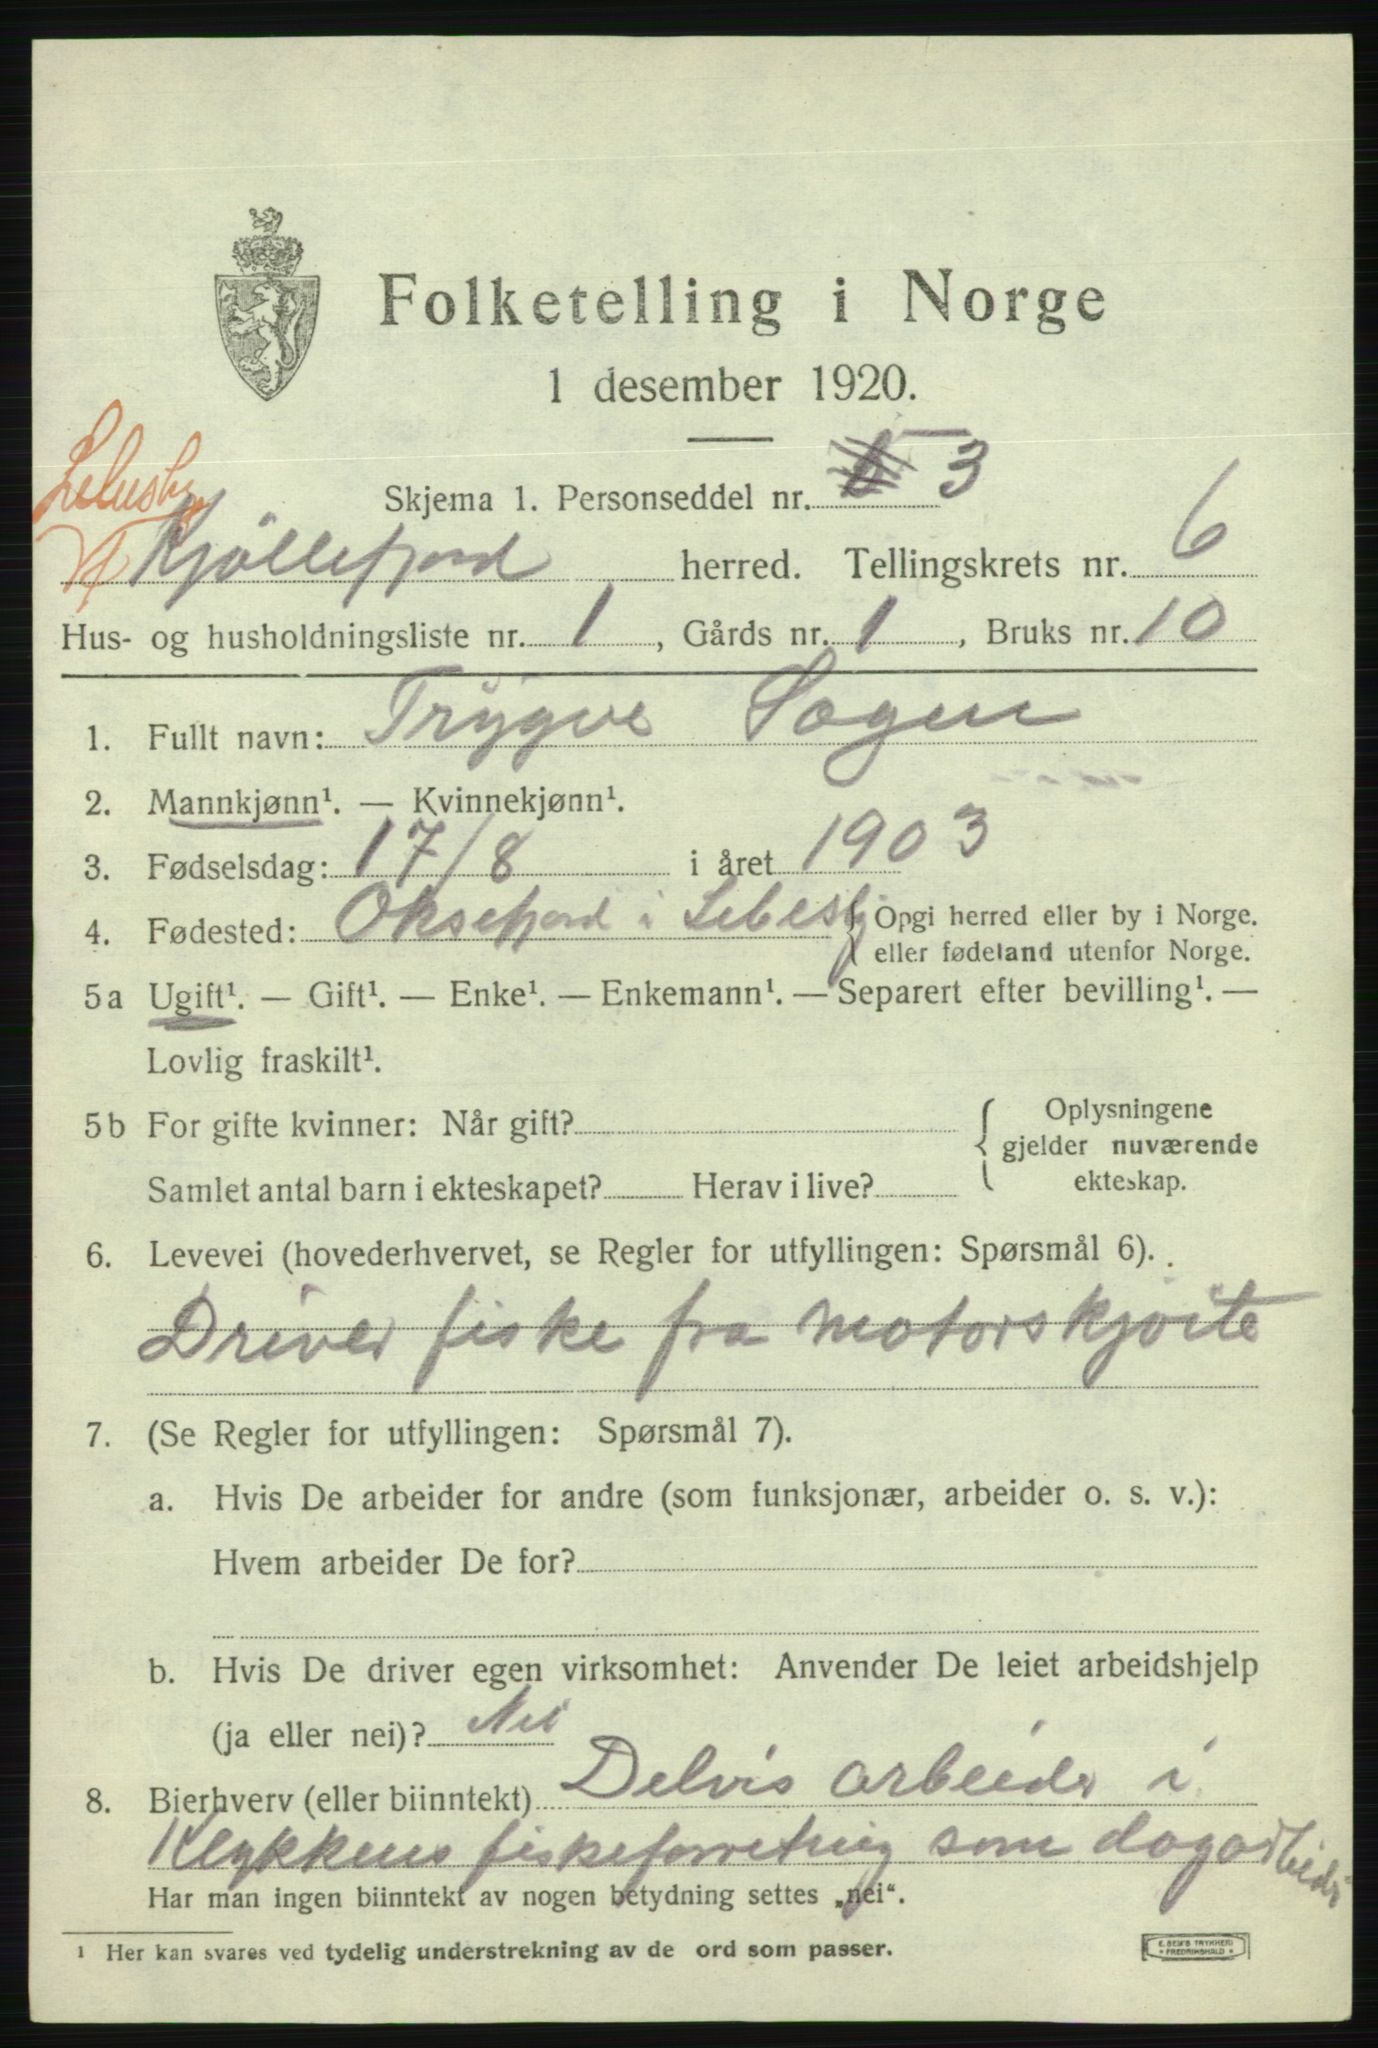 Folketelling i Norge
1 desember 1920.
Lebesby
Skjema 1. Personseddel nr. 3
Kjöllefjord herred. Tellingskrets nr. 6
Hus- og husholdningsliste nr. 1, Gårds nr. 1, Bruks nr. 10
1. Fullt navn: Trygve Sagen
2. Mannkjønn¹. — Kvinnekjønn¹.
3. Fødselsdag: 17/8 i året 1903
4. Fødested: Oksefjord i Lebesby { Opgi herred eller by i Norge.
eller fødeland utenfor Norge.
5a Ugift¹. — Gift¹. — Enke¹. — Enkemann¹. — Separert efter bevilling¹. —
Lovlig fraskilt¹.
5b For gifte kvinner: Når gift? { Oplysningene
gjelder nuværende
Samlet antal barn i ekteskapet? Herav i live? ekteskap.
6. Levevei (hovederhvervet, se Regler for utfyllingen: Spørsmål 6).
Driver fiske fra motorskjöite
7. (Se Regler for utfyllingen: Spørsmål 7).
a. Hvis De arbeider for andre (som funksjonær, arbeider o. s. v.):
Hvem arbeider De for?
b. Hvis De driver egen virksomhet: Anvender De leiet arbeidshjelp
(ja eller nei)? Nei
8. Bierhverv (eller biinntekt) Delvis arbeider i
Klykkens fiskeforretnig som dagarbeider
Har man ingen biinntekt av nogen betydning settes „nei“.
¹ Her kan svares ved tydelig understrekning av de ord som passer.
E. SEM'S TRYKKERI
FREDRIKSHALD